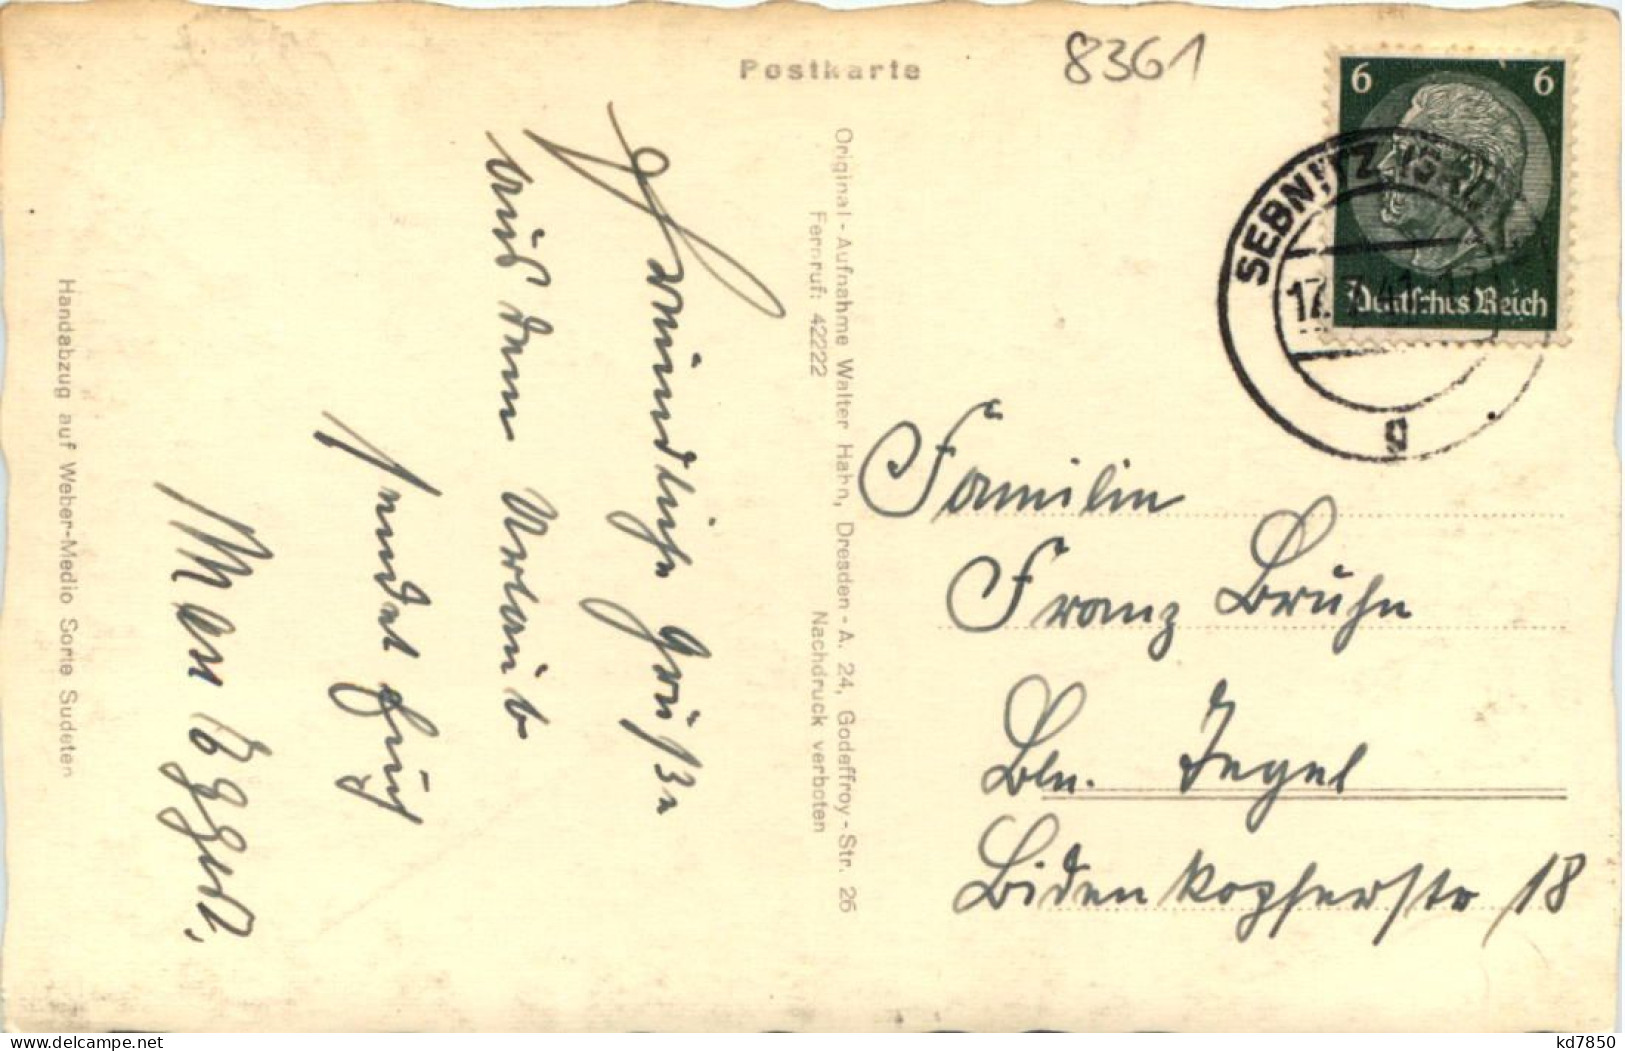 Postkarte
8361
6 6
Deutsches Reich
SEBNITZ (SACHS)
17.7.41
g
Freundliche Grüße
aus dem Urlaub
sendet Euch
Original-Aufnahme Walter Hahn, Dresden-A. 24, Godeffroy-Str. 26
Fernruf: 42222 Nachdruck verboten
Handabzug auf Weber-Medio Sorte Sudeten
Familie
Franz Bruhn
Bln. Tegel
Bidenkopferstr 18
kd7850